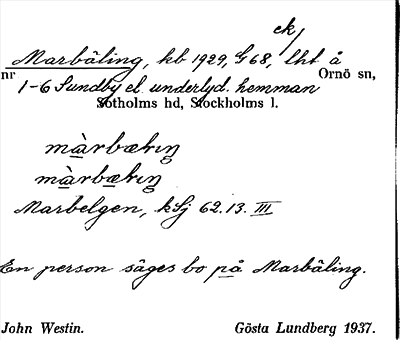 ek/
Marbäling, kb 1929, G 68, lht å
nr 1-6 Sundby el. underlyd. hemman Ornö sn,
Sotholms hd, Stockholms l.
màrbælıŋ
màrbælıŋ
Marbelgen, kSj 62.13. III
En person säges bo på Marbäling.
John Westin. Gösta Lundberg 1937.